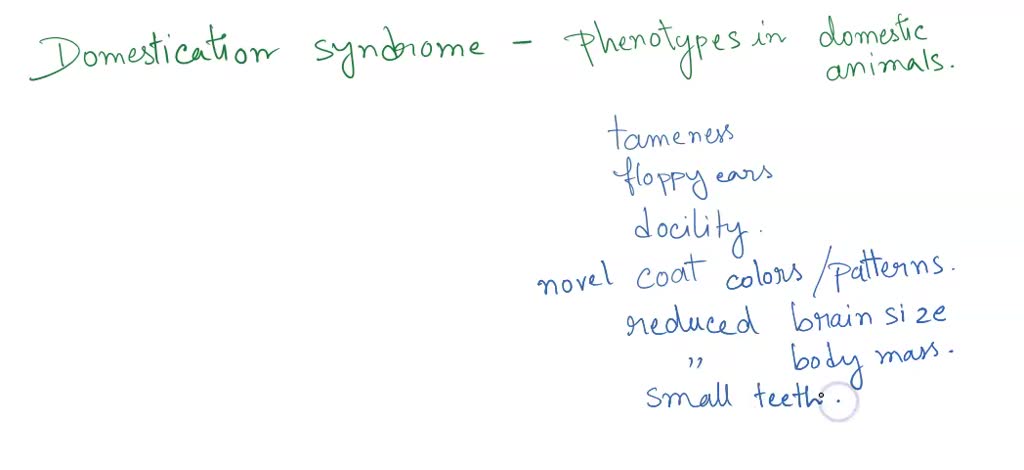 Domestication syndrome - Phenotypes in domestic
animals.
tameness
floppy ears
docility.
novel coat colors / patterns.
reduced brain size
" body mass.
small teeth.